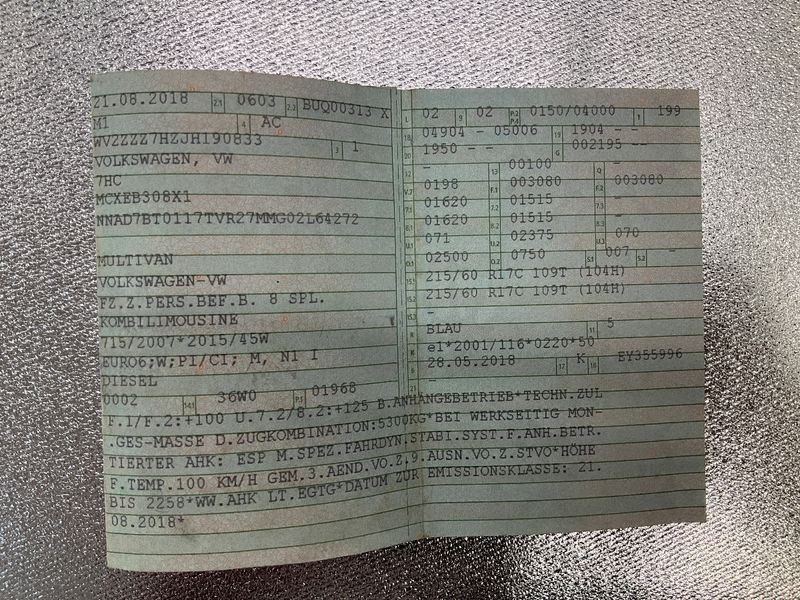 21.08.2018 2.1 0603 2.2 BUQ00313 X
M1 4 AC
WV2ZZZ7HZJH190833 3 1
VOLKSWAGEN, VW
7HC
MCXEB308X1
NNAD7BT0117TVR27MMG02L64272
MULTIVAN
VOLKSWAGEN-VW
FZ.Z.PERS.BEF.B. 8 SPL.
KOMBILIMOUSINE
715/2007*2015/45W
EURO6;W;PI/CI; M, N1 I
DIESEL
0002 14.1 36W0 P.1 01968
L 02 9 02 P.2 P.4 0150/04000 T 199
18 04904 - 05006 19 1904 - -
20 1950 - - G 002195 --
12 - 13 00100 Q -
V.7 0198 F.1 003080 F.2 003080
7.1 01620 7.2 01515 7.3 -
8.1 01620 8.2 01515 8.3 -
U.1 071 U.2 02375 U.3 070
O.1 02500 O.2 0750 S.1 007 S.2 -
15.1 215/60 R17C 109T (104H)
15.2 215/60 R17C 109T (104H)
15.3 -
R BLAU 11 5
K e1*2001/116*0220*50
6 28.05.2018 17 K 16 EY355996
21 -
F.1/F.2:+100 U.7.2/8.2:+125 B.ANHÄNGEBETRIEB*TECHN.ZUL
.GES-MASSE D.ZUGKOMBINATION:5300KG*BEI WERKSEITIG MON-
TIERTER AHK: ESP M.SPEZ.FAHRDYN.STABI.SYST.F.ANH.BETR.
F.TEMP.100 KM/H GEM.3.AEND.VO.Z.9.AUSN.VO.Z.STVO*HÖHE
BIS 2258*WW.AHK LT.EGTG*DATUM ZUR EMISSIONSKLASSE: 21.
08.2018*